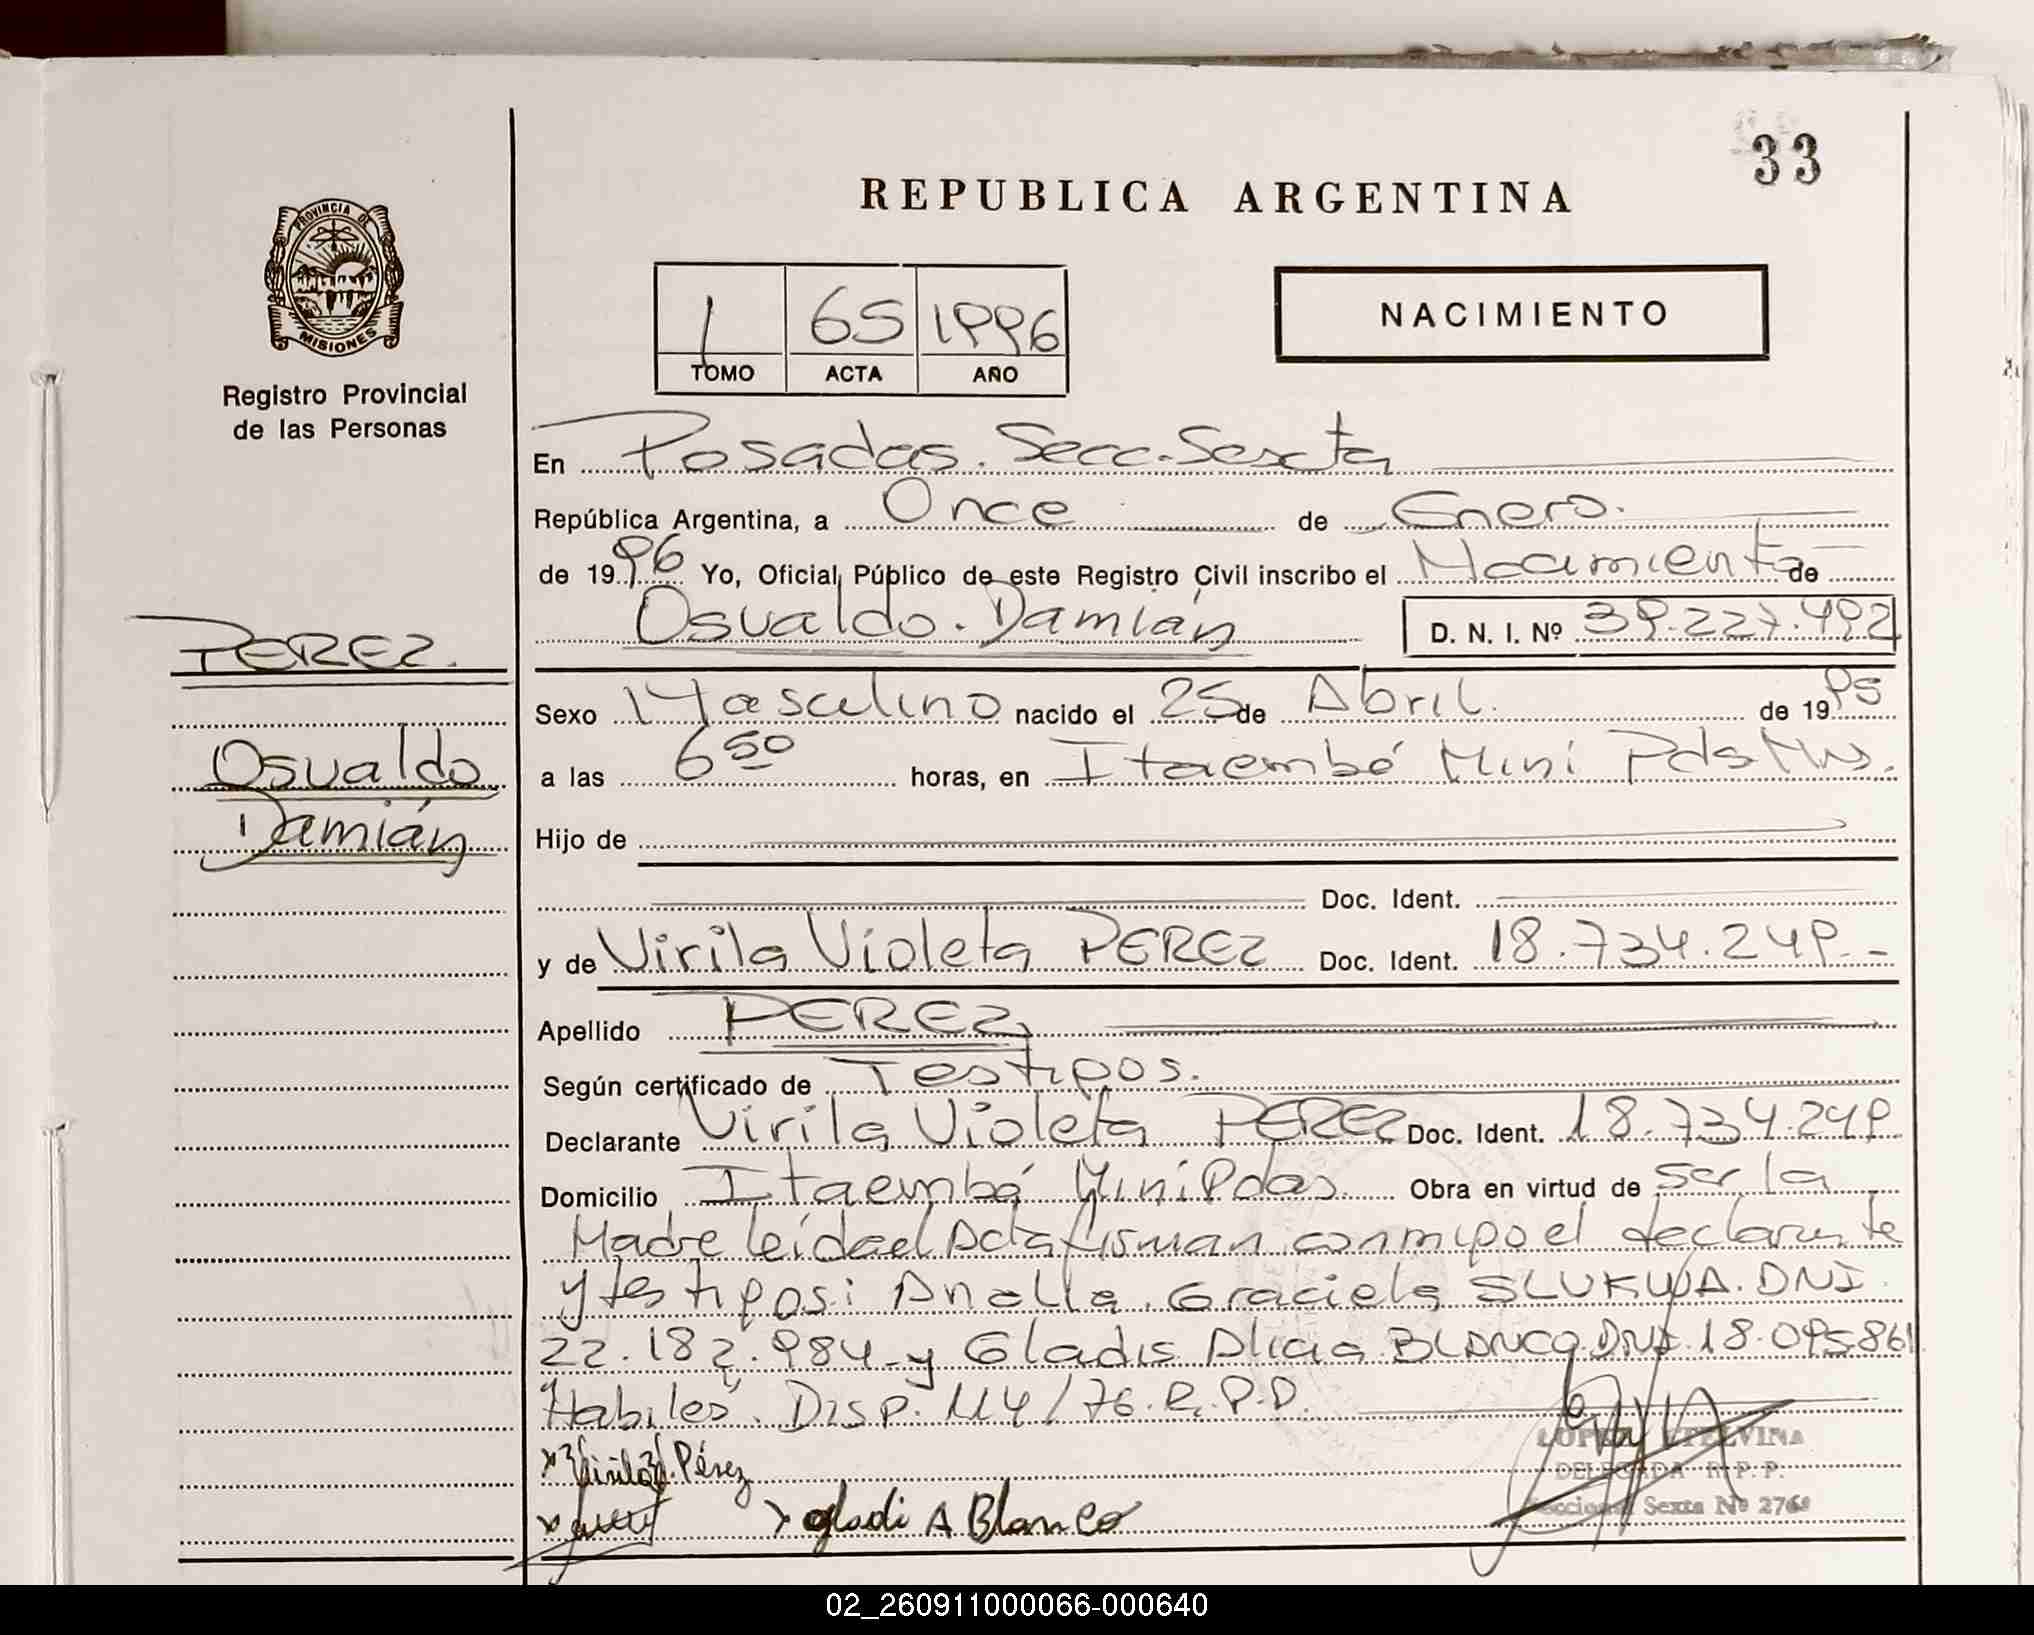 33
REPUBLICA ARGENTINA
PROVINCIA DE
MISIONES
Registro Provincial
de las Personas
1 65 1996
TOMO ACTA AÑO
NACIMIENTO
En Posadas. Secc. Sexta
República Argentina, a Once de Enero.
de 1996 Yo, Oficial Público de este Registro Civil inscribo el Nacimiento de
Osvaldo. Damián D. N. I. Nº 39.227.492
PEREZ.
Osvaldo
Damián
Sexo Masculino nacido el 25 de Abril. de 1995
a las 6 50 horas, en Itaembé Miní Pds Mns.
Hijo de
Doc. Ident.
y de Virila Violeta PEREZ Doc. Ident. 18.734.249.-
Apellido PEREZ
Según certificado de Testigos.
Declarante Virila Violeta PEREZ Doc. Ident. 18.734.249
Domicilio Itaembé Miní Pdas. Obra en virtud de ser la
Madre leida el Acta firman conmigo el declarante
y testigos: Analia Graciela SLUKWA. DNI
22.182.984 y Gladis Alicia BLANCO DNI 18.095861
"Habiles". Disp. 114/76. R.P.P.
x Virila V. Pérez
x x gladi A Blanco
LOPEZ ETELVINA
DELEGADA R. P. P.
Seccional Sexta Nº 276
02_260911000066-000640